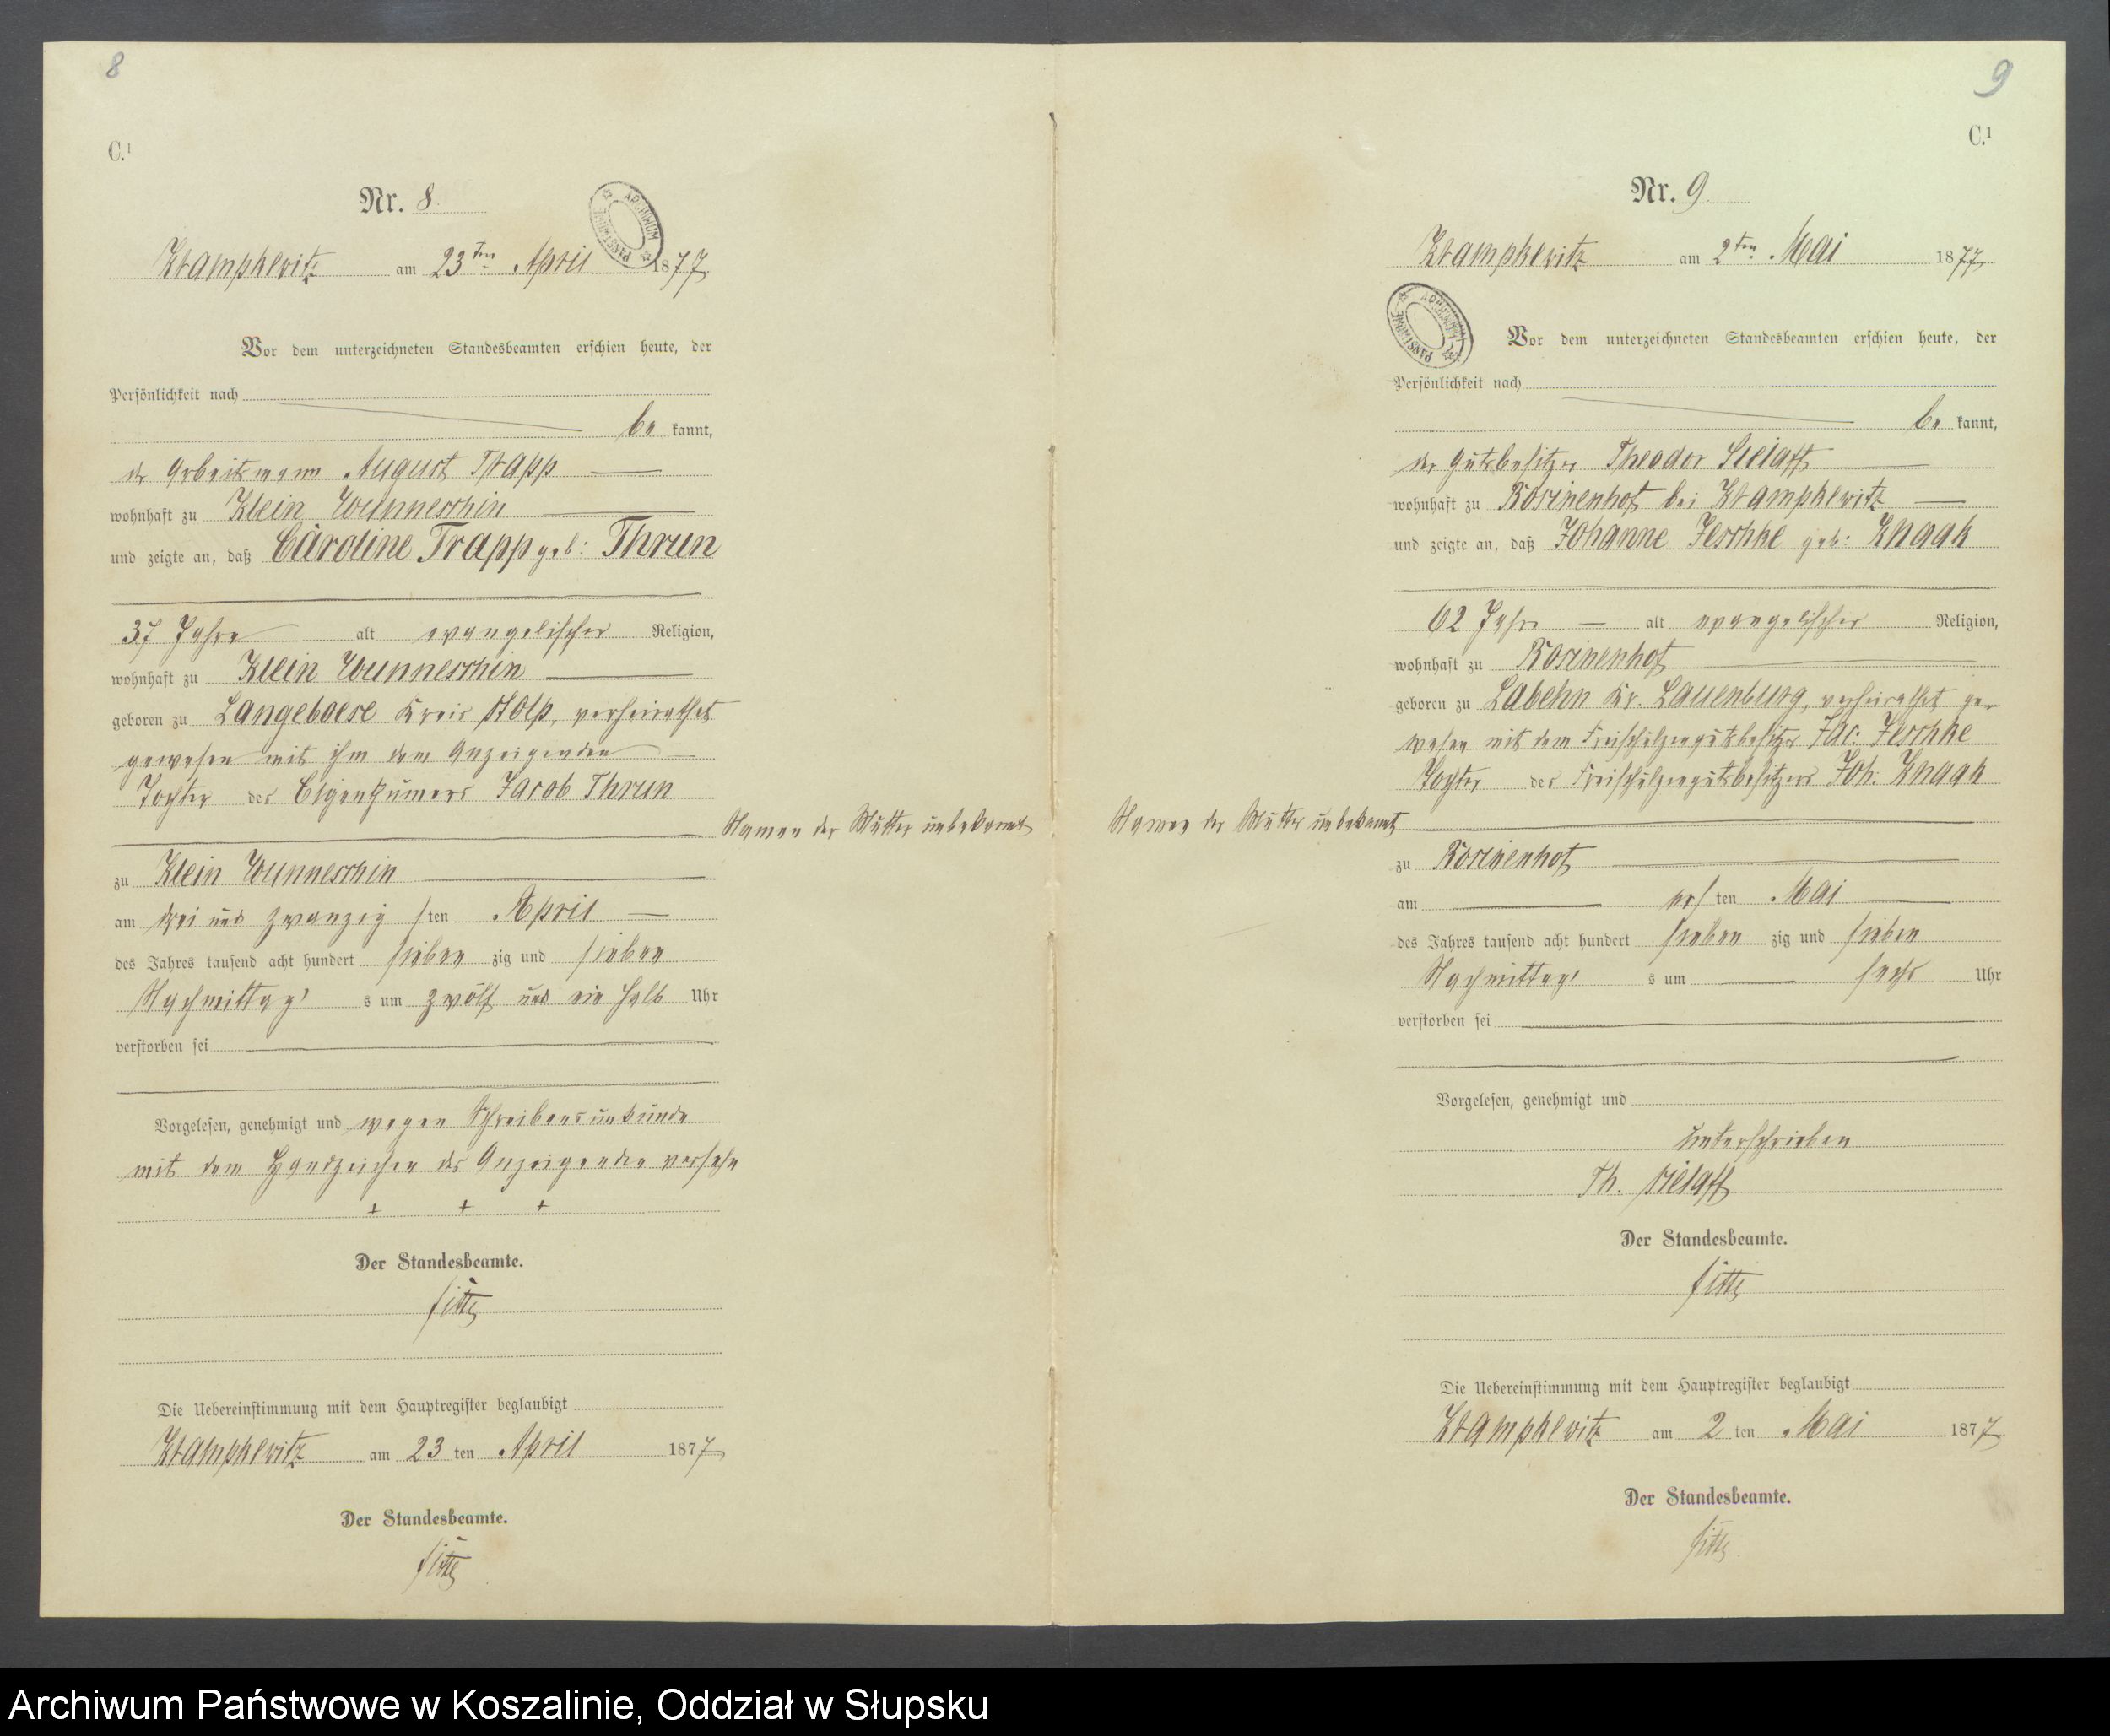 8
C.¹
Nr. 8.
ARCHIWUM PAŃSTWOWE
Krampkewitz am 23ten April 1877
Vor dem unterzeichneten Standesbeamten erschien heute, der
Persönlichkeit nach
be kannt,
der Arbeitsmann August Trapp
wohnhaft zu Klein Wunneschin
und zeigte an, daß Caroline Trapp geb: Thrun
37 Jahre alt evangelischer Religion,
wohnhaft zu Klein Wunneschin
geboren zu Langeboese Kreis Stolp, verheirathet
gewesen mit ihm dem Anzeigenden
Tochter des Eigenthümers Jacob Thrun
Namen der Mutter unbekannt
zu Klein Wunneschin
am drei und zwanzig sten April
des Jahres tausend acht hundert sieben zig und sieben
Nachmittag's s um zwölf und ein halb Uhr
verstorben sei
Vorgelesen, genehmigt und wegen Schreibensunkunde
mit dem Handzeichen des Anzeigenden versehn
+ + +
Der Standesbeamte.
Die Uebereinstimmung mit dem Hauptregister beglaubigt
Krampkewitz am 23 ten April 1877
Der Standesbeamte.
9
C.¹
Nr. 9.
Krampkewitz am 2ten Mai 1877
ARCHIWUM PAŃSTWOWE
Vor dem unterzeichneten Standesbeamten erschien heute, der
Persönlichkeit nach
be kannt,
der Gutsbesitzer Theodor Sielaff
wohnhaft zu Rosinenhof bei Krampkewitz
und zeigte an, daß Johanne Jeschke geb: Knaak
62 Jahre alt evangelischer Religion,
wohnhaft zu Rosinenhof
geboren zu Labehn Kr. Lauenburg, verheirathet ge-
wesen mit dem Freischulzengutsbesitzer Jac: Jeschke
Tochter des Freischulzengutsbesitzers Joh: Knaak
Namen der Mutter unbekannt
zu Rosinenhof
am ersten Mai
des Jahres tausend acht hundert sieben zig und sieben
Nachmittag's s um sechs Uhr
verstorben sei
Vorgelesen, genehmigt und
unterschrieben
Th. Sielaff
Der Standesbeamte.
Die Uebereinstimmung mit dem Hauptregister beglaubigt
Krampkewitz am 2 ten Mai 1877
Der Standesbeamte.
Archiwum Państwowe w Koszalinie, Oddział w Słupsku